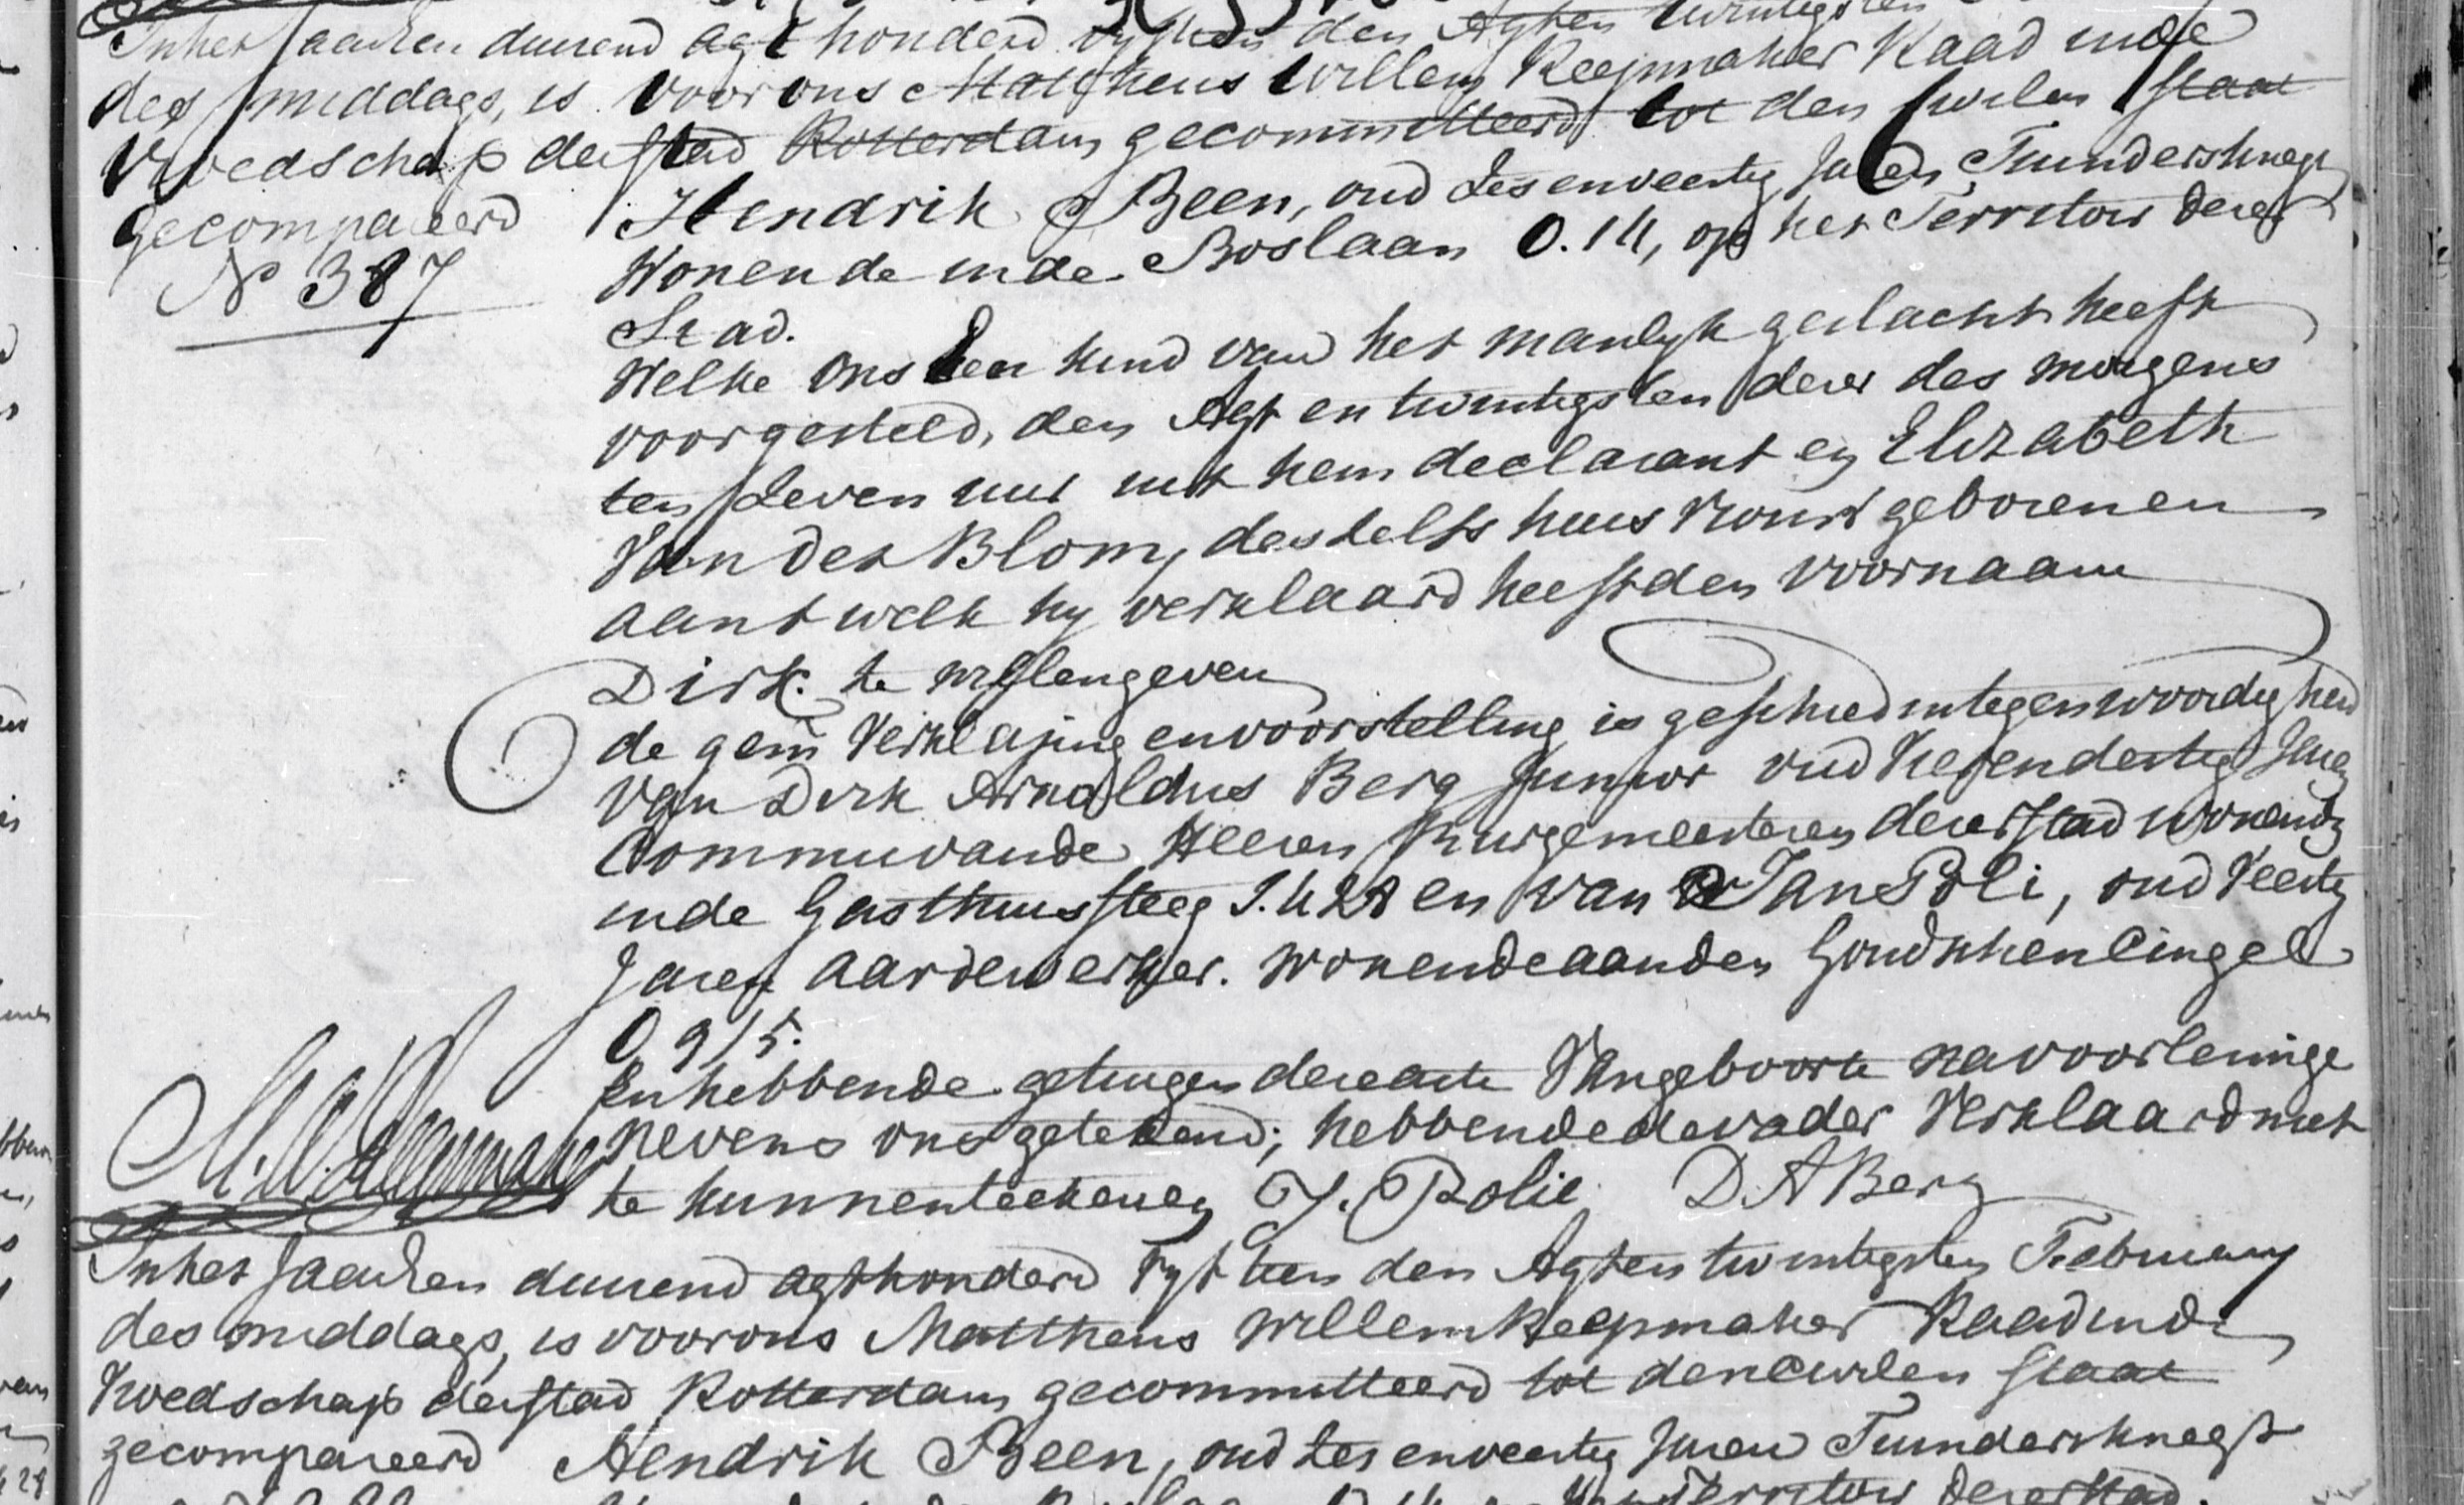 In het Jaar Een duisend agt honderd vyftien den Agt en twintigsten
des middags, is voor ons Mattheus Willem Reepmaker Raad in de
Vroedschap der stad Rotterdam gecommitteerd tot den Civilen staat
gecompareerd Hendrik Been, oud Zes en veertig Jaren Tuindersknegt
N° 387
Wonende in de Boslaan O. 14, op het Territoir dezer
Stad.
Welke ons Een kind van het manlyk geslacht heeft
voorgesteld, den Agt en twintigsten dezer des morgens
ten Zeven uur uit hem declarant en Elizabeth
Van der Blom, deszelfs huisvrouw geboren en
aan t welk hy verklaard heeft den voornaam
Dirk te willen geven
de gem verklaring en voorstelling is geschied in tegenwoordigheid
Van Dirk Arnoldus Berg Junior oud Vier en dertig Jaren
Commies van de Heeren Burgemeesteren dezer stad wonende
in de Gasthuissteeg I. 428 en van Jan Poli, oud Veertig
Jaren aardewerker. wonende aan den Goudschen Cingel
O 915.
En hebbende getuigen deze acte Van geboorte na voorlezinge
nevens ons getekend; hebbende de vader Verklaard niet
te kunnen teekenen J. Polie D A Berg
In het Jaar Een duisend agt honderd vyftien den Agt en twintigsten February
des middags, is voor ons Mattheus Willem Reepmaker Raad in de
Vroedschap der stad Rotterdam gecommitteerd tot den Civilen staat
gecompareerd Hendrik Been, oud Zes en veertig Jaren Tuindersknegt
Territoir dezer stad.